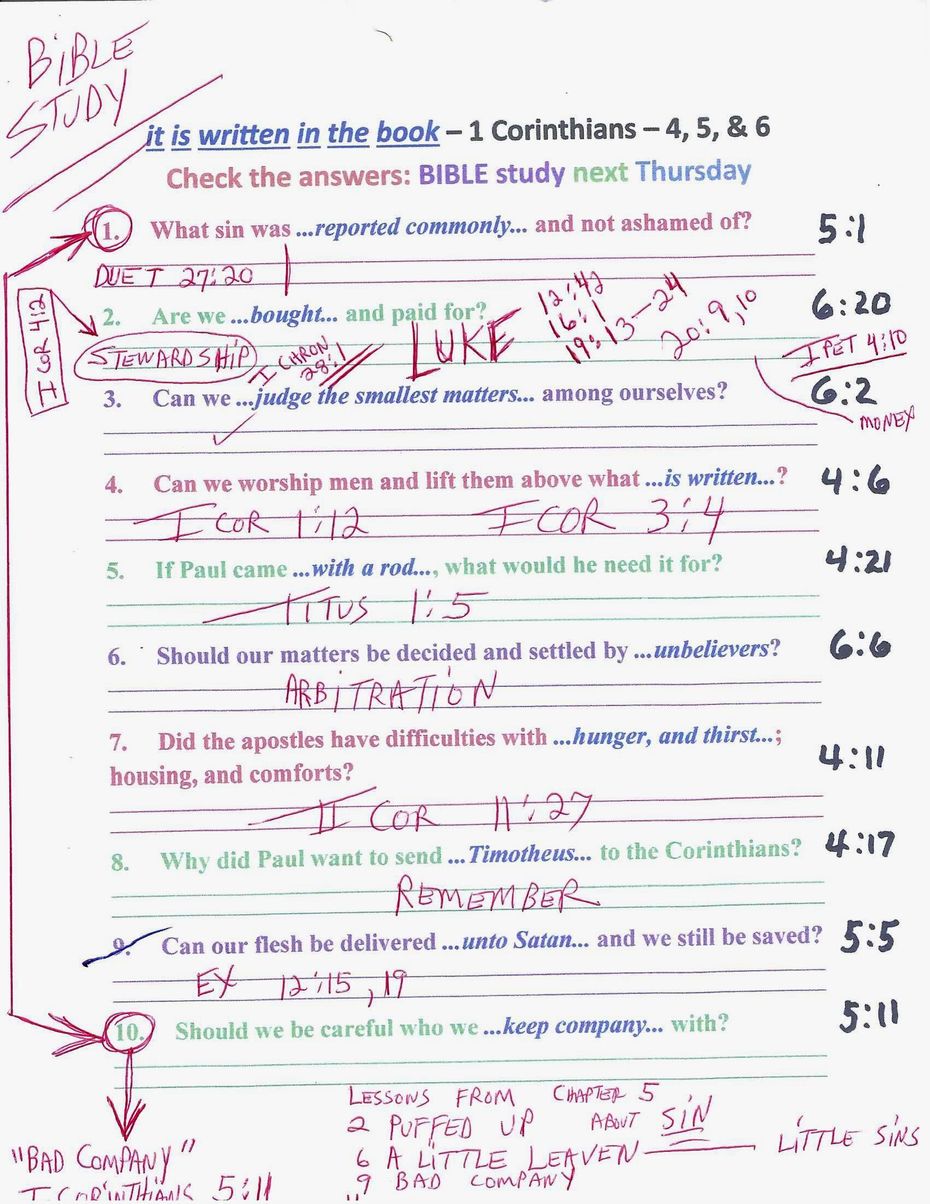 BIBLE
STUDY
it is written in the book – 1 Corinthians – 4, 5, & 6
Check the answers: BIBLE study next Thursday
1. What sin was ...reported commonly... and not ashamed of? 5:1
DUET 27:20
I COR 4:2
2. Are we ...bought... and paid for? 6:20
STEWARDSHIP
I CHRON 28:1
LUKE
12:42
16:1
19:13—24
20:9,10
I PET 4:10
3. Can we ...judge the smallest matters... among ourselves? 6:2
MONEY
4. Can we worship men and lift them above what ...is written...? 4:6
I COR 1:12 I COR 3:4
5. If Paul came ...with a rod..., what would he need it for? 4:21
TITUS 1:5
6. Should our matters be decided and settled by ...unbelievers? 6:6
ARBITRATION
7. Did the apostles have difficulties with ...hunger, and thirst...; 4:11
housing, and comforts?
II COR 11:27
8. Why did Paul want to send ...Timotheus... to the Corinthians? 4:17
REMEMBER
9. Can our flesh be delivered ...unto Satan... and we still be saved? 5:5
EX 12:15, 19
10. Should we be careful who we ...keep company... with? 5:11
LESSONS FROM CHAPTER 5
2 PUFFED UP ABOUT SIN
6 A LITTLE LEAVEN — LITTLE SINS
9 BAD COMPANY
"BAD COMPANY"
I CORINTHIANS 5:11